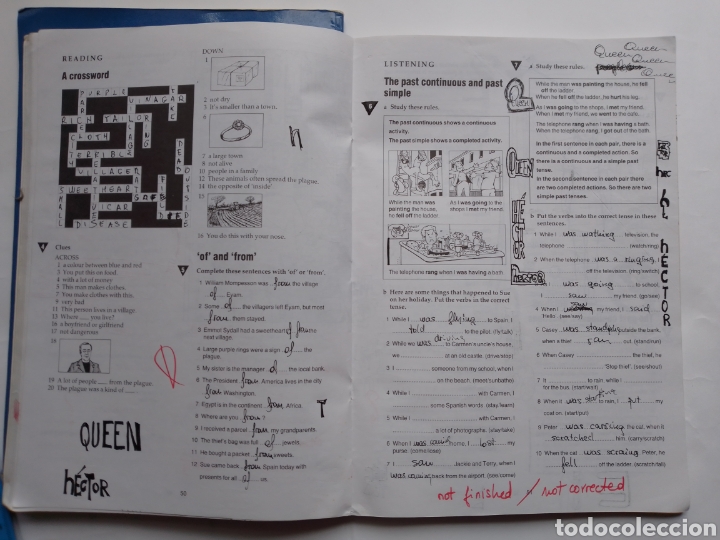 READING
A crossword
PURPLE
VINAGAR
RICH TAILOR
CLOTH
TERRIBLE
VILLAGER
SWEETHEART
SAFE
VICAR
DISEASE
4 Clues
ACROSS
1 a colour between blue and red
3 You put this on food.
4 with a lot of money
5 This man makes clothes.
7 You make clothes with this.
9 very bad
11 This person lives in a village
13 Where ___ you live?
16 a boyfriend or girlfriend
17 not dangerous
18
19 A lot of people ___ from the plague.
20 The plague was a kind of ___.
QUEEN
HÉCTOR
DOWN
1
2 not dry
3 It's smaller than a town.
6
7 a large town
8 not alive
10 people in a family
12 These animals often spread the plague.
14 the opposite of 'inside'
15
16 You do this with your nose.
'of' and 'from'
5 Complete these sentences with 'of' or 'from'.
1 William Mompesson was from the village
of Eyam.
2 Some of the villagers left Eyam, but most
from them stayed.
3 Emmot Sydall had a sweetheart from the
next village.
4 Large purple rings were a sign of the
plague.
5 My sister is the manager of the local bank.
6 The President from America lives in the city
from Washington.
7 Egypt is in the continent from Africa.
8 Where are you from?
9 I received a parcel from my grandparents.
10 The thief's bag was full of jewels.
11 He bought a packet from sweets.
12 Sue came back from Spain today with
presents for all of us.
50
LISTENING
The past continuous and past
simple
6 a Study these rules.
The past continuous shows a continuous
activity.
The past simple shows a completed activity.
While the man was
painting the house,
he fell off the ladder.
As I was going to the
shops I met my friend.
The telephone rang when I was having a bath
b Here are some things that happened to Sue
on her holiday. Put the verbs in the correct
tense.
1 While I was flying to Spain, I
told to the pilot. (fly/talk)
2 While we was driving
an old castle. (drive/stop)
3 I someone from my school, when I
on the beach. (meet/sunbathe)
4 While I with Carmen, I
some Spanish words (stay/learn)
5 While I with Carmen, I
a lot of photographs. (stay/take)
6 When I was coming home, I lost my
purse. (come/lose)
7 I saw Jackie and Terry, when I
was coming back from the airport (see/come)
7 a Study these rules.
Queen
Queen
Queen
Queen
While the man was painting the house, he fell
off the ladder.
When he fell off the ladder, he hurt his leg.
As I was going to the shops, I met my friend.
When I met my friend, we went to the cafe.
The telephone rang when I was having a bath.
When the telephone rang, I got out of the bath.
In the first sentence in each pair, there is a
continuous and a completed action. So
there is a continuous and a simple past
tense.
In the second sentence in each pair there
are two completed actions. So there are two
simple past tenses.
QUEEN
HÉCTOR
HÉCTOR
b Put the verbs into the correct tense in these
sentences.
1 While I was wathing television, the
telephone (watch/ring)
2 When the telephone was a ringing, I
off the television (ring/switch)
3 I was going to school
I saw my friend. (go/see)
4 When I saw my friend, I said
hello. (see/say)
5 Casey was standing outside the bank,
when a thief ran out. (stand/run)
6 When Casey the thief, he
'Stop thief'. (see/shout)
7 It to rain, while I
for the bus. (start/wait)
8 When it was starting to rain, I put my
coat on. (start/put)
9 Peter was carring the cat. When it
scratched him. (carry/scratch)
10 When the cat was scraing Peter, he
fell off the ladder. (scratch/fall)
not finished / not corrected
todocoleccion